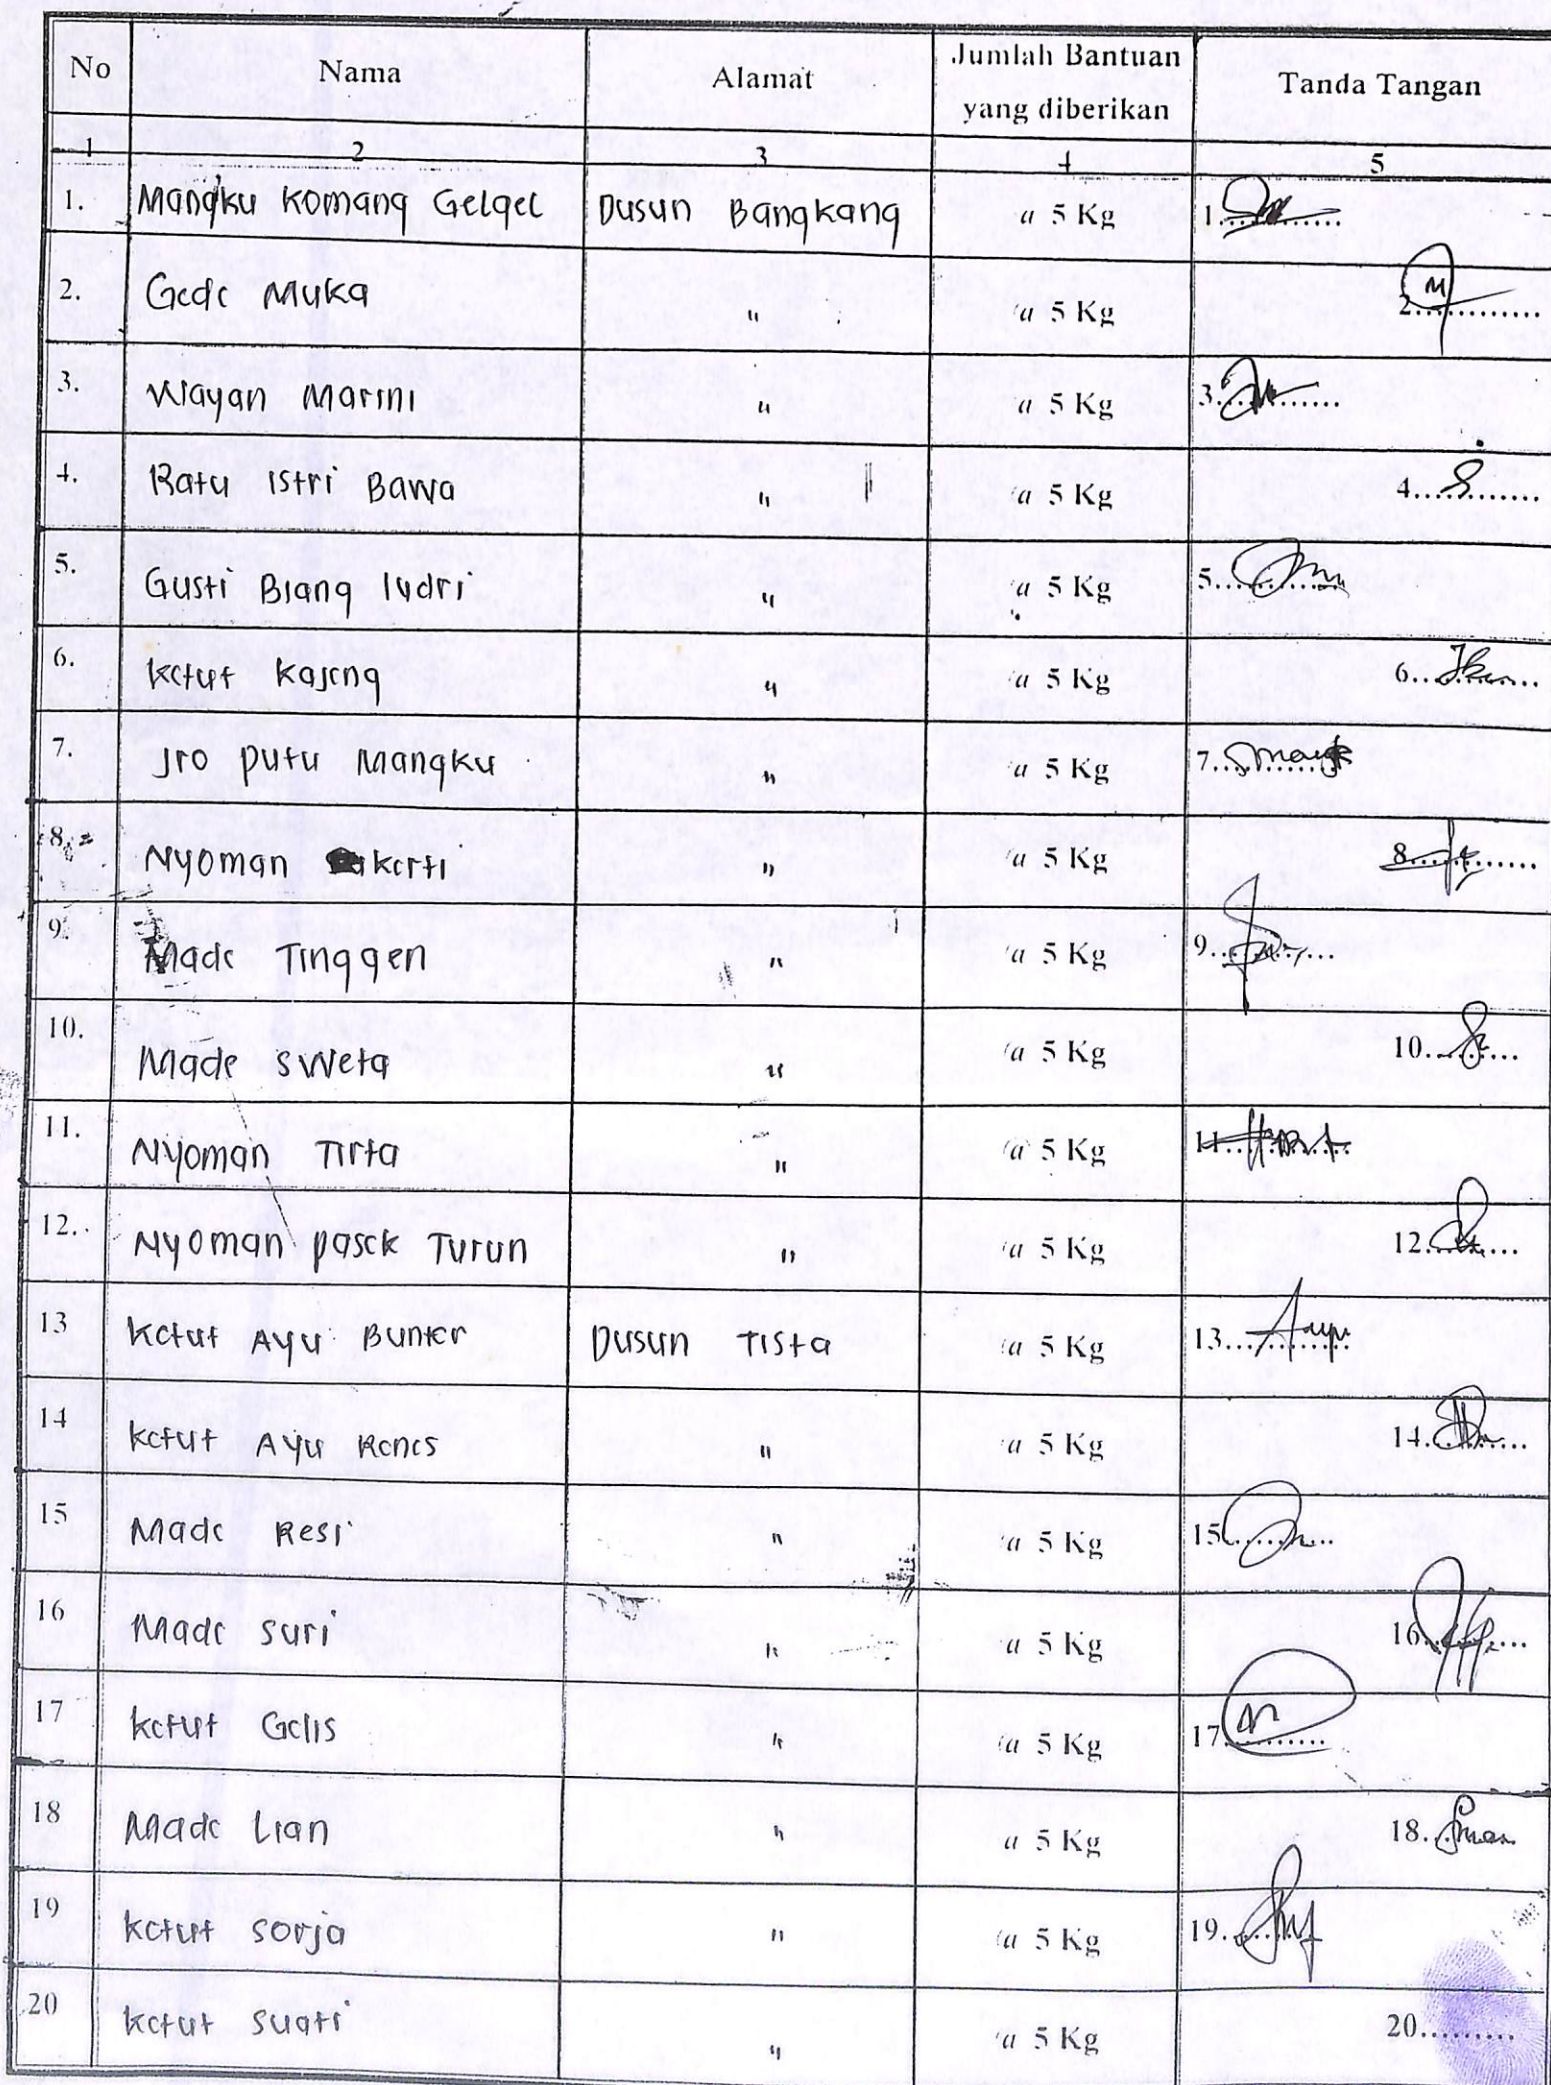 No Nama Alamat Jumlah Bantuan yang diberikan Tanda Tangan
1 2 3 4 5
1. Mangku Komang Gelgel Dusun Bangkang @ 5 Kg 1..........
2. Gede Muka " @ 5 Kg 2..........
3. Wayan Marini " @ 5 Kg 3..........
4. Ratu Istri Bawa " @ 5 Kg 4..........
5. Gusti Biang " @ 5 Kg 5..........
6. Ketut Kajeng " @ 5 Kg 6..........
7. Jro Putu Mangku " @ 5 Kg 7..........
8. Nyoman Kerti " @ 5 Kg 8..........
9. Made Tinggen " @ 5 Kg 9..........
10. Made Sweta " @ 5 Kg 10..........
11. Nyoman Tirta " @ 5 Kg 11..........
12. Nyoman Pasek Turun " @ 5 Kg 12..........
13 Ketut Ayu Bunter Dusun Tista @ 5 Kg 13..........
14 Ketut Ayu Renes " @ 5 Kg 14..........
15 Made Resi " @ 5 Kg 15..........
16 Made Suri " @ 5 Kg 16..........
17 Ketut Gelis " @ 5 Kg 17..........
18 Made Lian " @ 5 Kg 18..........
19 Ketut Sorja " @ 5 Kg 19..........
20 Ketut Suati " @ 5 Kg 20..........